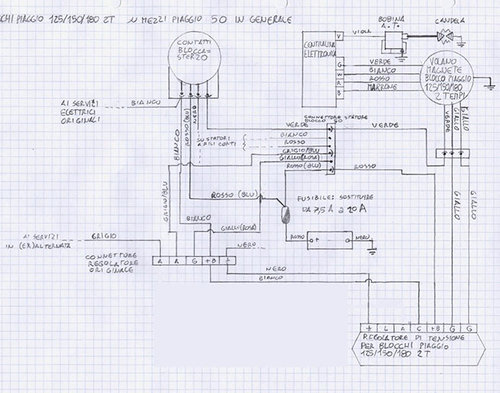 CHI PIAGGIO 125/150/180 2T SU MEZZI PIAGGIO 50 IN GENERALE
CONTATTI
BLOCCA-
STERZO
CENTRALINA
ELETTRONICA
VIOLA
BOBINA
A.T.
CANDELA
V
G
VERDE
BIANCO
ROSSO
MARRONE
VOLANO
MAGNETE
BLOCCO PIAGGIO
125/150/180
2 TEMPI
AI SERVIZI
ELETTRICI
ORIGINALI
BIANCO
BIANCO
ROSSO(BLU)
CONNETTORE STATORE
BLOCCO 50
VERDE
VERDE
BIANCO
ROSSO
GRIGIO/BLU
GIALLO(ROSA)
ROSSO(BLU)
ROSSO
VERDE
GIALLO
GIALLO
GIALLO
GIALLO
GRIGIO/BLU
ROSSO (BLU)
FUSIBILE: SOSTITUIRE
DA 7,5 A 20A
BIANCO
GIALLO(ROSA)
AI SERVIZI
IN (ER)ALTERNATA
GRIGIO
NERO
ROSSO
+
-
NERO
CONNETTORE
REGOLATORE
ORIGINALE
A
A
G
+B
-
NERO
BIANCO
L
A
C
+B
G
G
REGOLATORE DI TENSIONE
PER BLOCCHI PIAGGIO
125/150/180 2T